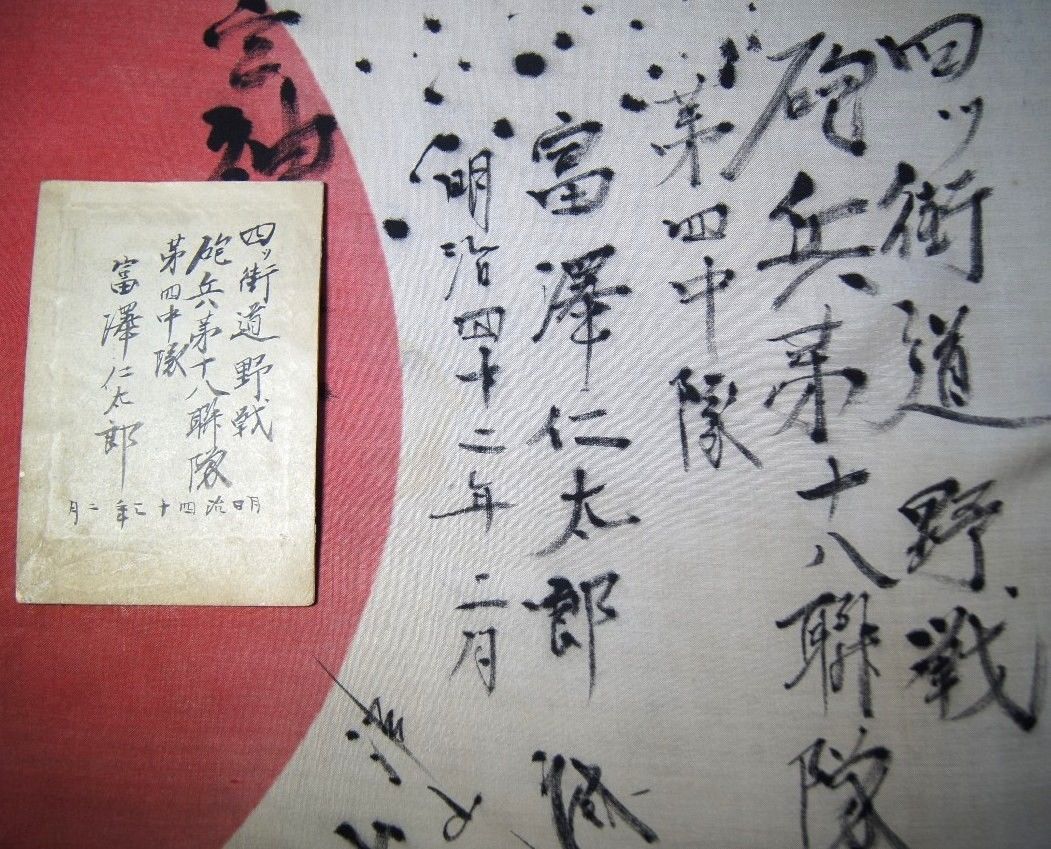 四ッ街道野戦
砲兵第十八聯隊
第四中隊
富澤仁太郎
明治四十二年二月
四ッ街道野戦
砲兵第十八聯隊
第四中隊
富澤仁太郎
明治四十二年二月